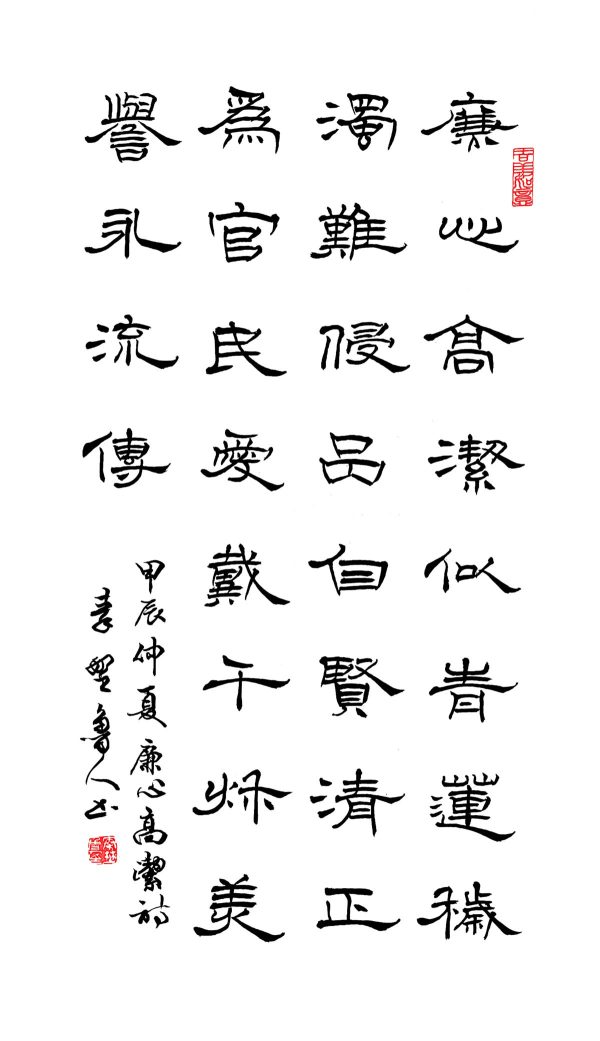 廉心高潔似青蓮穢
濁難侵品自賢清正
為官民愛戴千秌美
譽永流傳
甲辰仲夏廉心高潔詩
魯人書